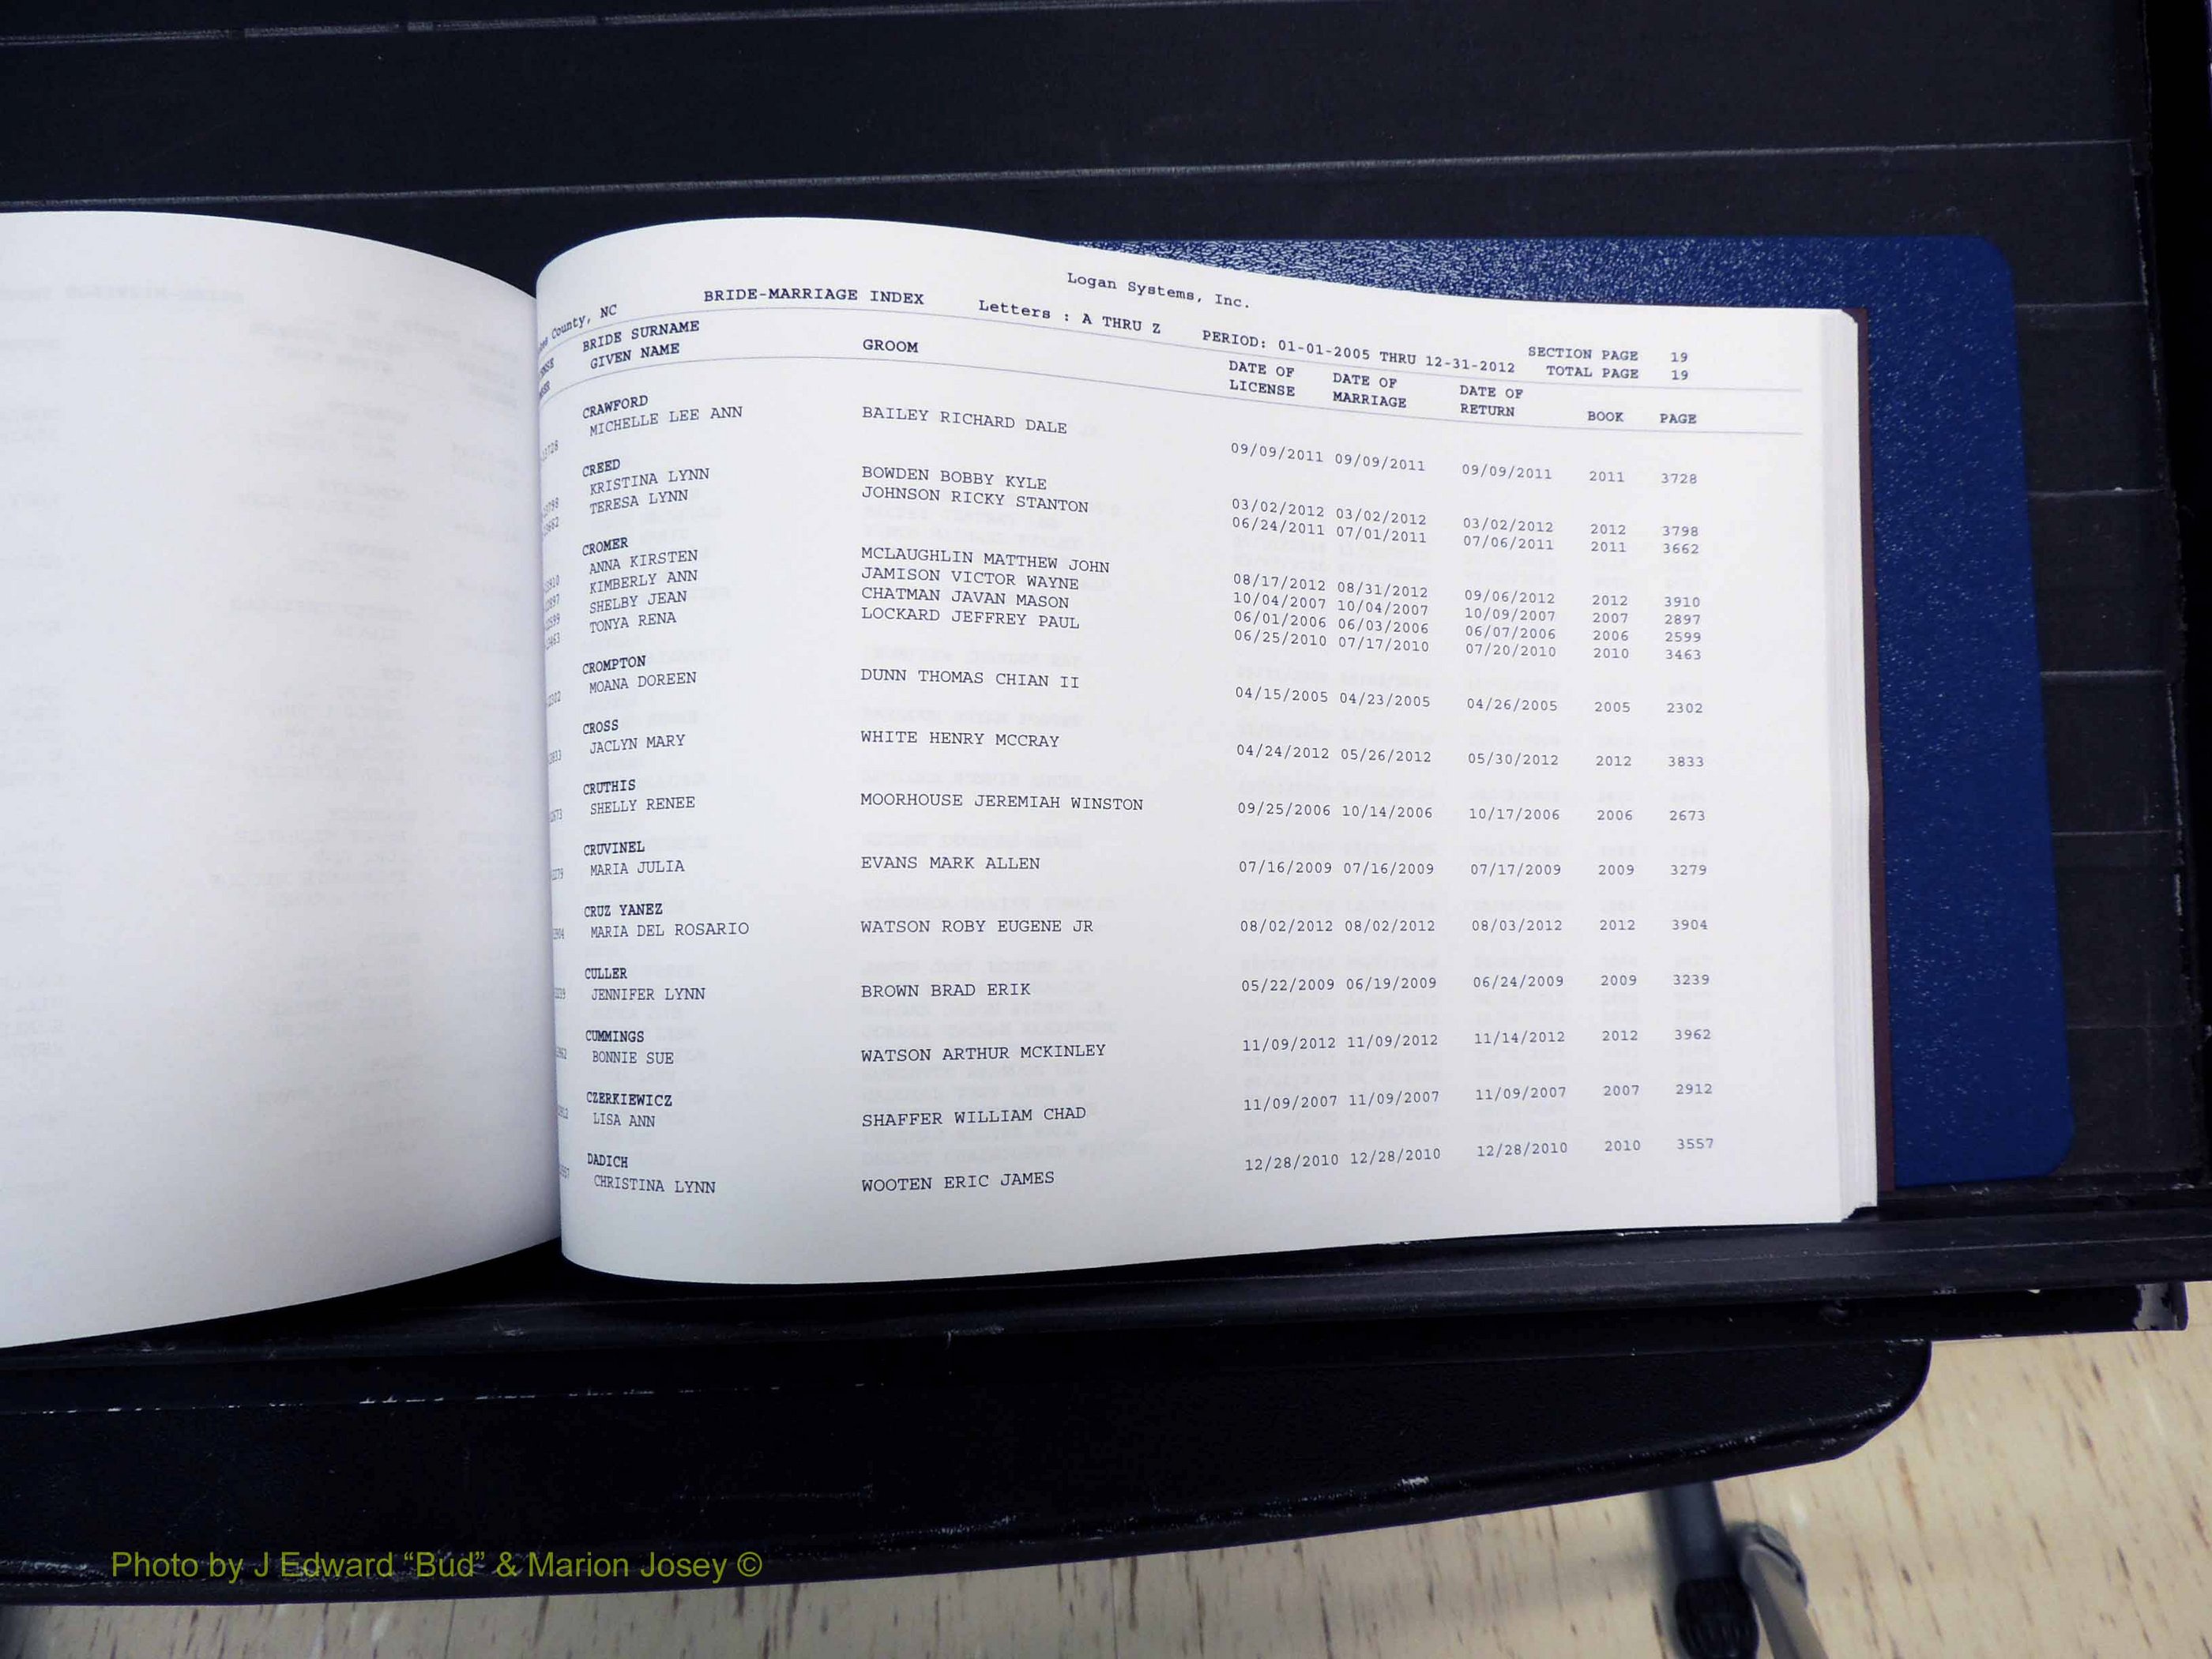 Logan Systems, Inc.
County, NC BRIDE-MARRIAGE INDEX Letters : A THRU Z PERIOD: 01-01-2005 THRU 12-31-2012 SECTION PAGE 19
TOTAL PAGE 19
BRIDE SURNAME DATE OF DATE OF DATE OF
GIVEN NAME GROOM LICENSE MARRIAGE RETURN BOOK PAGE
CRAWFORD
MICHELLE LEE ANN BAILEY RICHARD DALE 09/09/2011 09/09/2011 09/09/2011 2011 3728
CREED
KRISTINA LYNN BOWDEN BOBBY KYLE 03/02/2012 03/02/2012 03/02/2012 2012 3798
TERESA LYNN JOHNSON RICKY STANTON 06/24/2011 07/01/2011 07/06/2011 2011 3662
CROMER
ANNA KIRSTEN MCLAUGHLIN MATTHEW JOHN 08/17/2012 08/31/2012 09/06/2012 2012 3910
KIMBERLY ANN JAMISON VICTOR WAYNE 10/04/2007 10/04/2007 10/09/2007 2007 2897
SHELBY JEAN CHATMAN JAVAN MASON 06/01/2006 06/03/2006 06/07/2006 2006 2599
TONYA RENA LOCKARD JEFFREY PAUL 06/25/2010 07/17/2010 07/20/2010 2010 3463
CROMPTON
MOANA DOREEN DUNN THOMAS CHIAN II 04/15/2005 04/23/2005 04/26/2005 2005 2302
CROSS
JACLYN MARY WHITE HENRY MCCRAY 04/24/2012 05/26/2012 05/30/2012 2012 3833
CRUTHIS
SHELLY RENEE MOORHOUSE JEREMIAH WINSTON 09/25/2006 10/14/2006 10/17/2006 2006 2673
CRUVINEL
MARIA JULIA EVANS MARK ALLEN 07/16/2009 07/16/2009 07/17/2009 2009 3279
CRUZ YANEZ
MARIA DEL ROSARIO WATSON ROBY EUGENE JR 08/02/2012 08/02/2012 08/03/2012 2012 3904
CULLER
JENNIFER LYNN BROWN BRAD ERIK 05/22/2009 06/19/2009 06/24/2009 2009 3239
CUMMINGS
BONNIE SUE WATSON ARTHUR MCKINLEY 11/09/2012 11/09/2012 11/14/2012 2012 3962
CZERKIEWICZ
LISA ANN SHAFFER WILLIAM CHAD 11/09/2007 11/09/2007 11/09/2007 2007 2912
DADICH
CHRISTINA LYNN WOOTEN ERIC JAMES 12/28/2010 12/28/2010 12/28/2010 2010 3557
Photo by J Edward “Bud” & Marion Josey ©